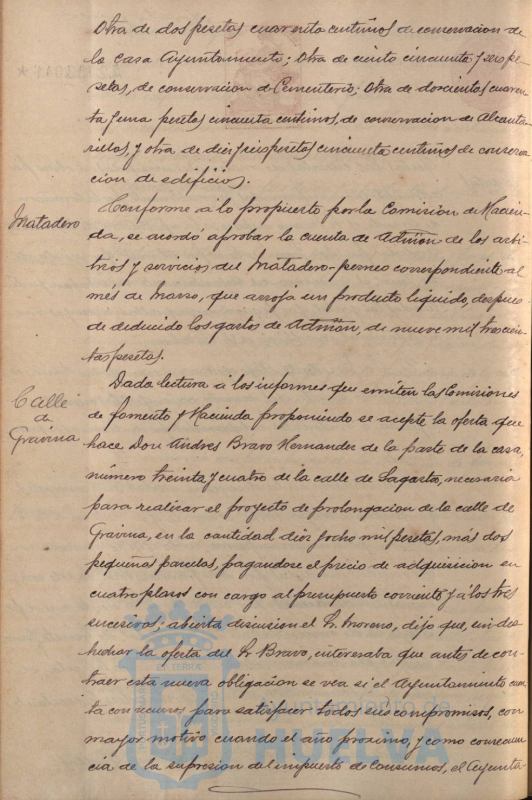 Otra de dos pesetas cuarenta centimos de conservacion de
la Casa Ayuntamiento; Otra de ciento cincuenta y seis pe-
setas, de conservacion de Cementerio; Otra de doscientas cuaren-
ta y una pesetas cincuenta centimos, de conservacion de Alcanta-
rillas, y otra de diez y seis pesetas cincuenta centimos de conserva-
cion de edificios.
Matadero
Conforme á lo propuesto por la Comision de Hacien-
da, se acordó aprobar la cuenta de Admon de los arbi-
trios y servicios del Matadero-perneo correspondiente al
més de Marzo, que arroja un producto liquido, despues
de deducido los gastos de Admon, de nueve mil trescien-
tas pesetas.
Calle
de
Gravina
Dada lectura á los informes que emiten las Comisiones
de fomento y Hacienda proponiendo se acepte la oferta que
hace Don Andres Bravo Hernandez de la parte de la casa,
número treinta y cuatro de la calle de Sagasta, necesaria
para realizar el proyecto de prolongacion de la calle de
Gravina, en la cantidad diez y ocho mil pesetas, más dos
pequeñas parcelas, pagandose el precio de adquisicion en
cuatro plazos con cargo al presupuesto corriente y á los tres
sucesivos; abierta discusion el Sr. Moreno, dijo que, sin des-
hechar la oferta del Sr. Bravo, interesaba que antes de con-
traer esta nueva obligacion se vea si el Ayuntamiento cuen-
ta con recursos para satisfacer todos sus compromisos, con
mayor motivo cuando el año proximo, y como consecuen-
cia de la supresion del impuesto de Consumos, el Ayunta-
Ayuntamiento de
HUELVA